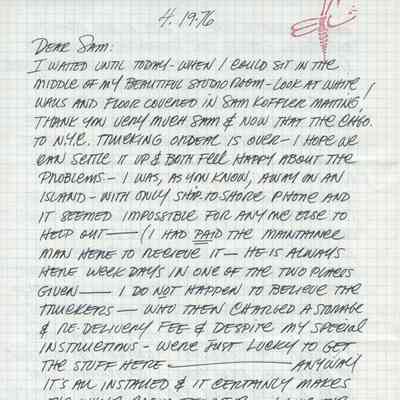 4.19.76
DEAR SAM:
I WAITED UNTIL TODAY - WHEN I COULD SIT IN THE
MIDDLE OF MY BEAUTIFUL STUDIO ROOM - LOOK AT WHITE
WALLS AND FLOOR COVERED IN SAM KOFFLER MATTING!
THANK YOU VERY MUCH SAM & NOW THAT THE CHGO.
TO N.Y.C. TRUCKING ORDEAL IS OVER - I HOPE WE
CAN SETTLE IT UP & BOTH FEEL HAPPY ABOUT THE
PROBLEMS - I WAS, AS YOU KNOW, AWAY ON AN
ISLAND - WITH ONLY SHIP.TO.SHORE PHONE AND
IT SEEMED IMPOSSIBLE FOR ANYONE ELSE TO
HELP OUT — (I HAD PAID THE MAINTAINCE
MAN HERE TO RECIEVE IT — HE IS ALWAYS
HERE WEEK DAYS IN ONE OF THE TWO PLACES
GIVEN — I DO NOT HAPPEN TO BELIEVE THE
TRUCKERS — WHO THEN CHARGED A STORAGE
& RE-DELIVERY FEE & DESPITE MY SPECIAL
INSTRUCTIONS - WERE JUST LUCKY TO GET
THE STUFF HERE — ANYWAY
IT'S ALL INSTALLED & IT CERTAINLY MAKES